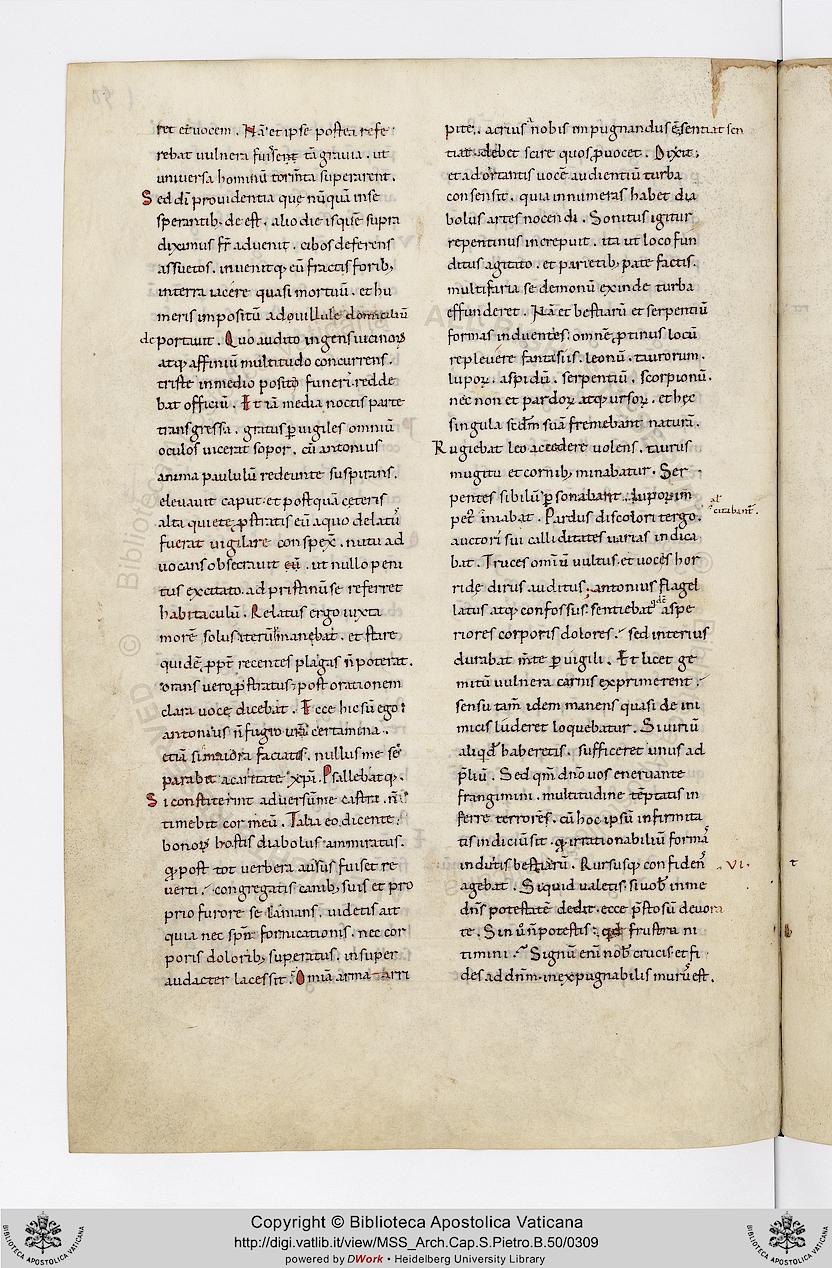 ret et uocem . Nā et ipse postea refe
rebat uulnera fuisse tā grauia . ut
uniuersa hominū torm̄ta superarent .
Sed dī prouidentia quę nūquā in se
sperantib; de est . alio die isquē supra
diximus fr̄ aduenit . cibos deferens
assuetos . inuenitq; eū fractis forib;
in terra iacére quasi mortuū . et hu
meris impositū ad uillulę domiciliū
deportauit . Quo audito ingens uicinoꝝ
atq; affiniū multitudo concurrens .
triste in medio posito funeri redde
bat officiū . Et iā media noctis parte
transgressa . grauis ꝑuigiles omniū
oculos uicerat sopor . cū antonius
anima paululū redeunte suspirans .
eleuauit caput . et postquā ceteris
alta quiete ꝓstratis eū a quo delatū
fuerat uigilare conspex̄ . nutu ad
uocans obsecrauit eū . ut nullo peni
tus excitato . ad pristinū se referret
habitaculū . Relatus ergo iuxta
morē solus iterū manebat . et stare
quidē ꝓpt̄ recentes plagas n̄ poterat .
orans uero ꝓstratus ; post orationem
clara uoce dicebat . Ecce hic sū ego
antonius n̄ fugio ur̄a certamina .
etiā si maiora faciatis . nullus me se
parabit a caritate xp̄i . Psallebatq; .
Si consisterint aduersū me castra . n̄
timebit cor meū . Talia eo dicente .
bonoꝝ hostis diabolus ammiratus .
qd̄ post tot uerbera ausus fuisset re
uerti . congregatis canib; suis et pro
prio furore se lanians . uidetis ait
quia nec sp̄u fornicationis . nec cor
poris dolorib; superatus . insuper
audacter lacessit . Omia arma arri
pite . acrius nobis inpugnandus ē . sentiat sen
tiat . debet scire quos ꝓuocet . Dixit ;
et adortantis uocē audientiū turba
consensit . quia innumeras habet dia
bolus artes nocendi . Sonitus igitur
repentinus increpuit . ita ut loco fun
ditus agitato . et parietib; patefactis .
multifaria se demonū exinde turba
effunderet . Nā et bestiarū et serpentiū
formas induentes : omnē ꝓtinus locū
repleuere fantasiis . leonū . taurorum .
lupoꝝ . aspidū . serpentiū . scorpionū .
nec non et pardoꝝ atq; ursoꝝ . et hęc
singula scdm̄ suā fremebant naturā .
Rugiebat leo accedere uolens . taurus
mugitu et cornib; minabatur . Ser
pentes sibilū ꝑsonabant . lupoꝝ im
pet̄ iniabat . Pardus discolori tergo .
al̄ citabant̄ .
auctori sui calliditates uarias indica
bat . Truces omīū uultus . et uoces hor
ride dirus auditus . antonius flagel
latus atq; confossus . sentiebat qdē aspe
riores corporis dolores . sed interius
durabat m̄te ꝑuigili . Et licet ge
mitū uulnera carnis exprimerent .
sensu tam̄ idem manens quasi de ini
micis luderet loquebatur . Si uiriū
aliqd̄ haberetis . sufficeret unus ad
p̄liū . Sed qm̄ dn̄o uos eneruante
frangimini . multitudine tēptatis in
ferre terrores . cū hoc ipsū infirmita
tis indiciū sit . qd̄ irrationabiliū formā
induitis bestiarū . Rursusq; confidenť
VI .
agebat . Si quid ualetis . si uob̄ in me
dn̄s potestatē dedit . ecce p̄sto sū deuora
te . Sin ū n̄ potestis : qd̄ frustra ni
timini . Signū enī nob̄ crucis et fi
des ad dn̄m . inexpugnabilis murus est .
Copyright © Biblioteca Apostolica Vaticana
http://digi.vatlib.it/view/MSS_Arch.Cap.S.Pietro.B.50/0309
powered by DWork • Heidelberg University Library